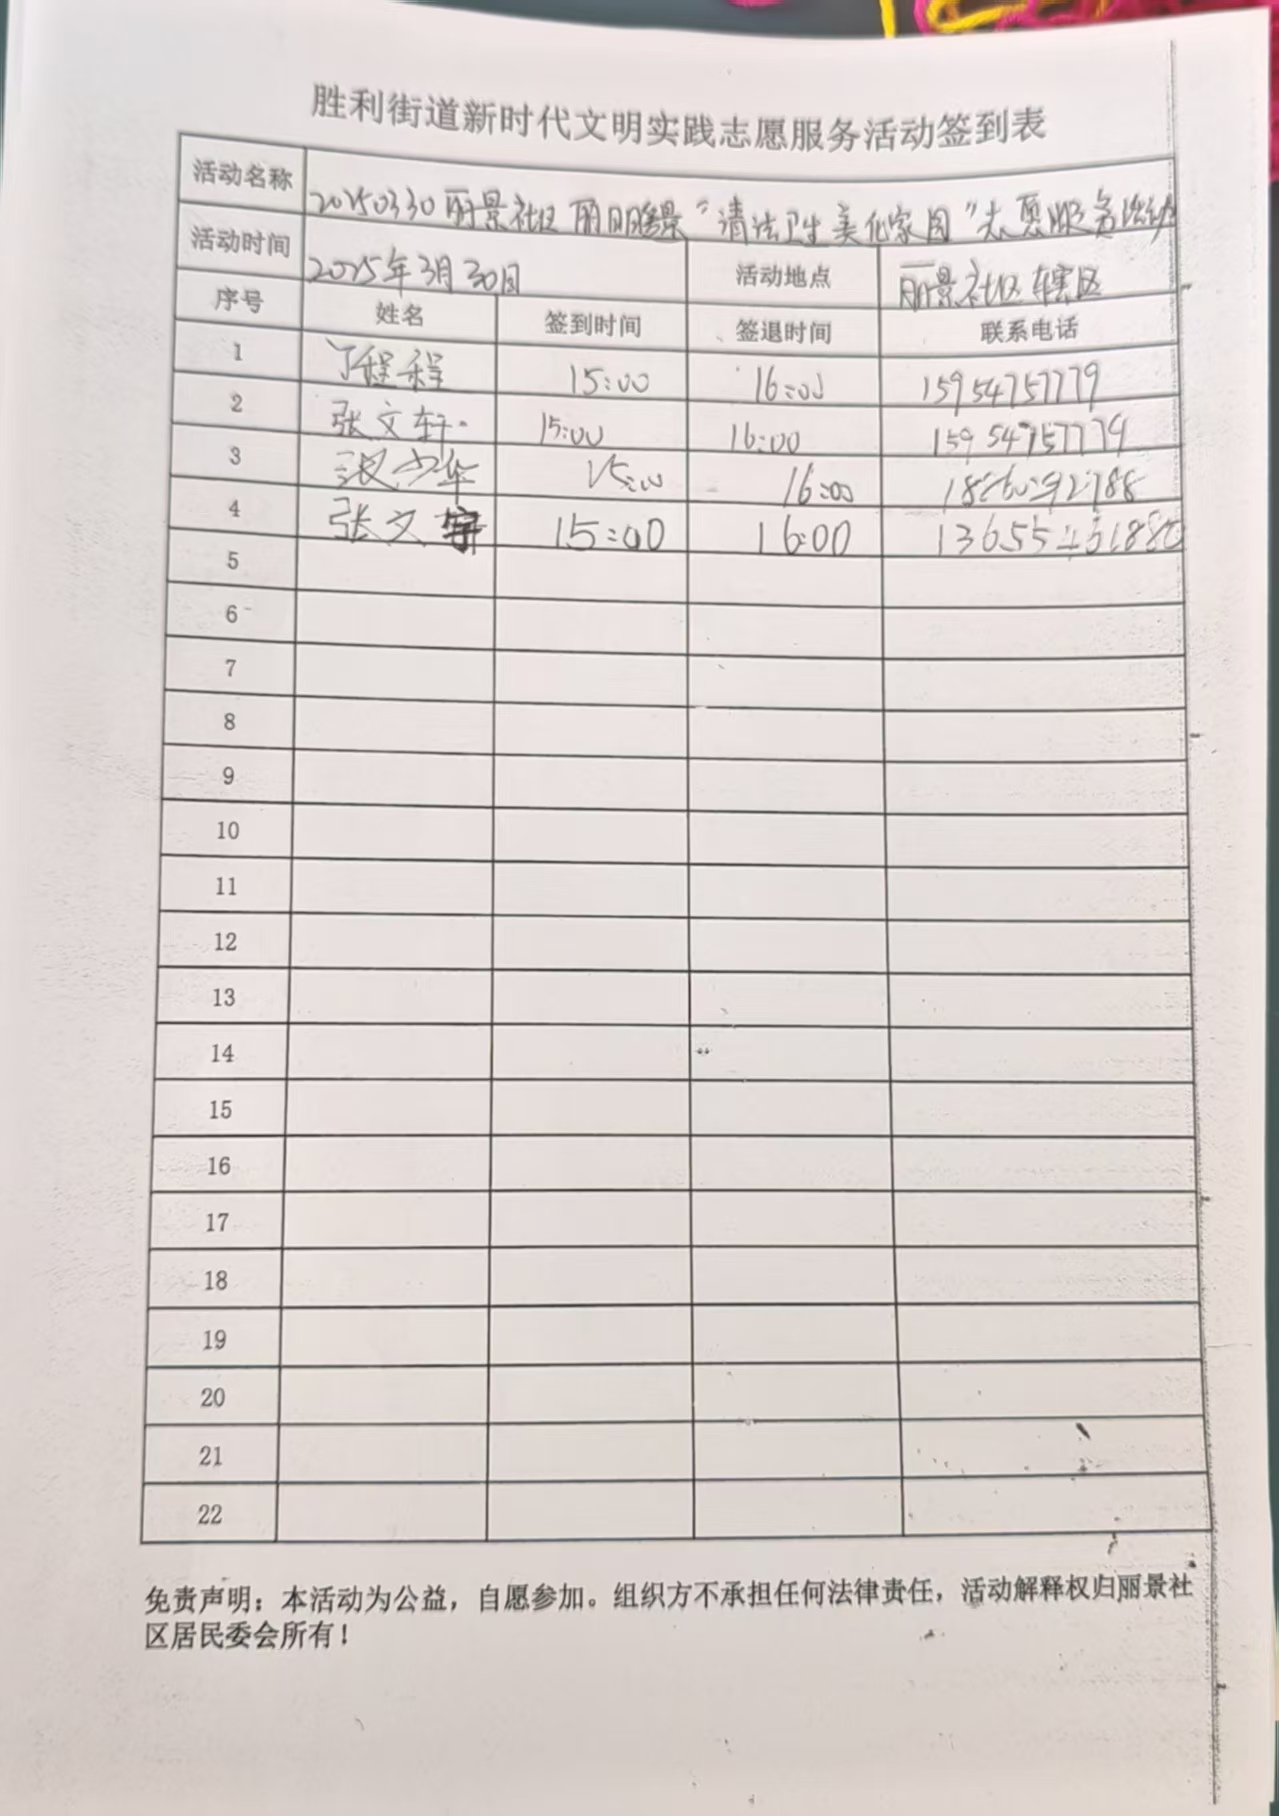 胜利街道新时代文明实践志愿服务活动签到表
活动名称 20250330丽景社区 "清洁卫生美化家园"志愿服务活动
活动时间 2025年3月30日 活动地点 丽景社区辖区
序号 姓名 签到时间 签退时间 联系电话
1 丁程程 15:00 16:00 15954757779
2 张文轩 15:00 16:00 15954757779
3 15:00 16:00
4 张文宇 15:00 16:00
5
6
7
8
9
10
11
12
13
14
15
16
17
18
19
20
21
22
免责声明：本活动为公益，自愿参加。组织方不承担任何法律责任，活动解释权归丽景社
区居民委会所有！